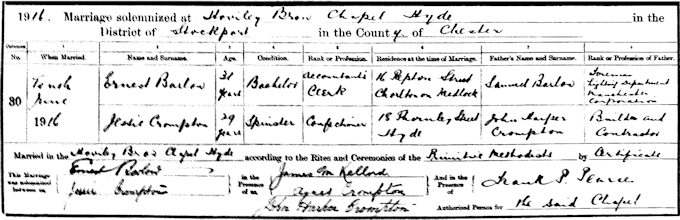 1916. Marriage solemnized at Hoviley Brow Chapel Hyde in the
District of Stockport in the County of Chester
Columns:— 1 2 3 4 5 6 7 8
No. When Married. Name and Surname. Age. Condition. Rank or Profession. Residence at the time of Marriage. Father's Name and Surname. Rank or Profession of Father.
80
Tenth June 1916
Ernest Barlow 31 years Bachelor Accountants Clerk 16 Street Chorlton on Medlock Samuel Barlow Foreman Lighting Department Manchester Corporation
Jessie Crompton 29 years Spinster Confectioner 18 Thornley Street Hyde John Harper Crompton Builder and Contractor
Married in the Hoviley Brow Chapel Hyde according to the Rites and Ceremonies of the Primitive Methodists by Certificate
This Marriage was solemnized between us
Ernest Barlow
Jessie Crompton
in the Presence of us
James M Kellord
Agnes Crompton
John Harper Crompton
And in the Presence of
Frank P. Pearce
Authorized Person for the said Chapel